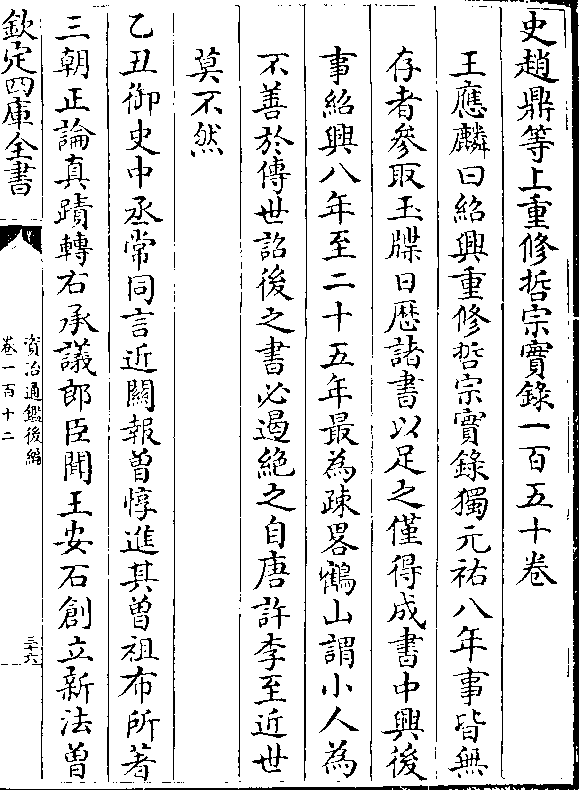 史趙鼎等上重修哲宗實錄一百五十卷
王應麟曰紹興重修哲宗實錄獨元祐八年事皆無
存者參取玉牒日厯諸書以足之僅得成書中興後
事紹興八年至二十五年最為疎畧鶴山謂小人為
不善於傳世詔後之書必遏絶之自唐許李至近世
莫不然
乙丑御史中丞常同言近闗報曽惇進其曽祖布所著
三朝正論真蹟轉右承議郎臣聞王安石創立新法曽
欽定四庫全書
資治通鑑後編
卷一百十二
三十六